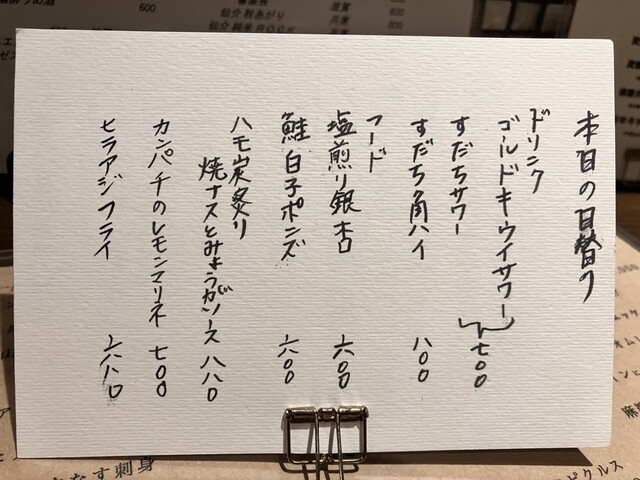 本日の日替り
ドリンク
ゴールドキウイサワー
すだちサワー 七〇〇
すだち角ハイ 八〇〇
フード
塩煎り銀杏 六〇〇
鮭白子ポンズ 六〇〇
ハモ炭炙り
焼ナスとみょうがソース 八八〇
カンパチのレモンマリネ 七〇〇
ヒラアジフライ 六八〇
600
滋賀
仙介 秋あがり
兵庫
仙介 純米ROCK
兵庫
なす刺身
ピクルス